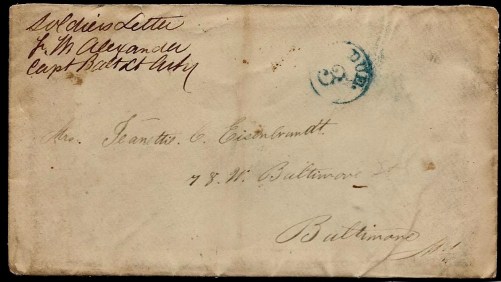 Soldiers Letter
F. W. Alexander
Capt Balt Lt Arty
DUE. 3
Mrs. Jeanette. C. Eisenbrandt.
78. W. Baltimore
Baltimore
Md